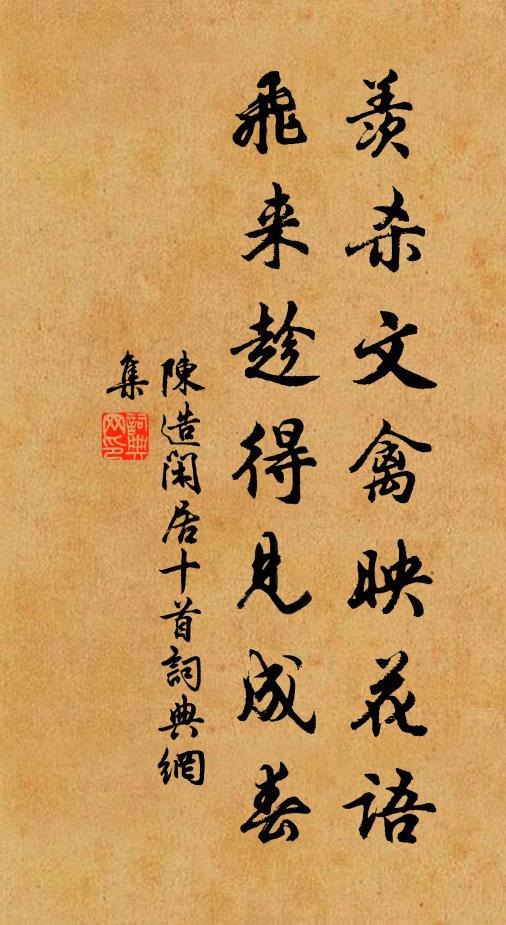 羨杀文禽映花语
飛来趁得見成春
陳造閑居十首詞典網
集
詞典
网印